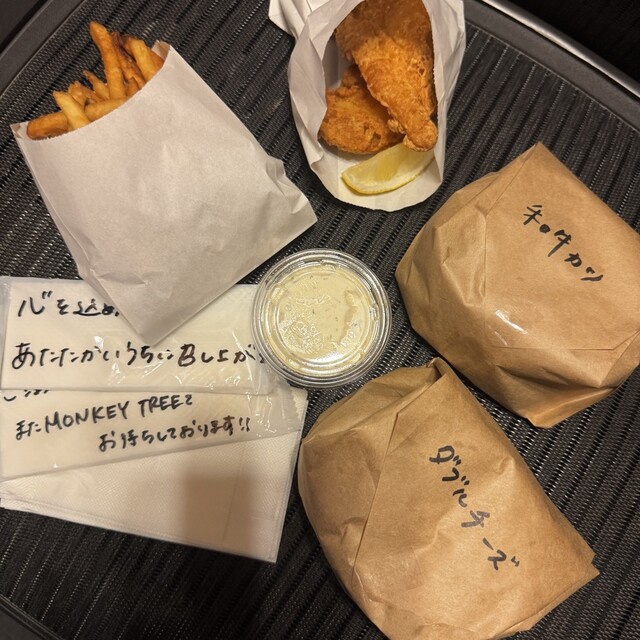 心を込め
あたたかいうちに召し上が
また MONKEY TREEで
お待ちしております!!
和牛カツ
ダブルチーズ